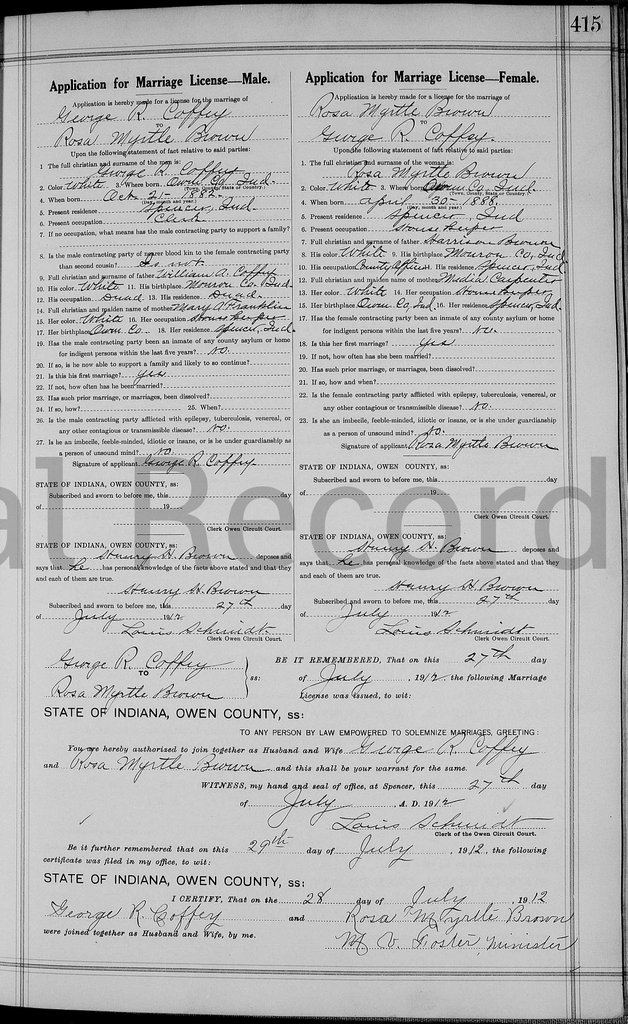 415
Application for Marriage License—Male.
Application is hereby made for a license for the marriage of
George R. Coffey
TO
Rosa Myrtle Brown
Upon the following statement of fact relative to said parties:
1. The full christian and surname of the man is:
George R. Coffey
2. Color White 3. Where born Owen Co. Ind.
(Town, County, State or Country.)
4. When born Oct 21— 1882
(Day, month and year.)
5. Present residence Spencer, Ind.
6. Present occupation Clerk
7. If no occupation, what means has the male contracting party to support a family?
8. Is the male contracting party of nearer blood kin to the female contracting party
than second cousin? Is not.
9. Full christian and surname of father William A. Coffey
10. His color White 11. His birthplace Monroe Co. Ind.
12. His occupation Dead 13. His residence Dead.
14. Full christian and surname of maiden name of mother Mary A. Franklin
15. Her color White 16. Her occupation Housekeeper
17. Her birthplace Owen Co. 18. Her residence Spencer, Ind.
19. Has the male contracting party been an inmate of any county asylum or home
for indigent persons within the last five years? No.
20. If so, is he now able to support a family and likely to so continue?
21. Is this his first marriage? Yes
22. If not, how often has he been married?
23. Has such prior marriage, or marriages, been dissolved?
24. If so, how? 25. When?
26. Is the male contracting party afflicted with epilepsy, tuberculosis, venereal, or
any other contagious or transmissible disease? No.
27. Is he an imbecile, feeble-minded, idiotic or insane, or is he under guardianship as
a person of unsound mind? No
Signature of applicant George R. Coffey
STATE OF INDIANA, OWEN COUNTY, ss:
Subscribed and sworn to before me, this day
of 19
Clerk Owen Circuit Court.
STATE OF INDIANA, OWEN COUNTY, ss:
Henry H. Brown deposes and
says that he has personal knowledge of the facts above stated and that they
and each of them are true.
Henry H. Brown
Subscribed and sworn to before me, this 27th day
of July 1912
Louis Schmidt.
Clerk Owen Circuit Court.
Application for Marriage License—Female.
Application is hereby made for a license for the marriage of
Rosa Myrtle Brown
TO
George R. Coffey.
Upon the following statement of fact relative to said parties:
1. The full christian and surname of the woman is:
Rosa Myrtle Brown
2. Color White 3. Where born Owen Co. Ind.
(Town, County, State or Country.)
4. When born April 30— 1888.
(Day, month and year.)
5. Present residence Spencer, Ind
6. Present occupation Housekeeper
7. Full christian and surname of father Harrison Brown
8. His color White 9. His birthplace Monroe Co, Ind
10. His occupation County Officer 11. His residence Spencer, Ind
12. Full christian and maiden name of mother Media Carpenter
13. Her color White 14. Her occupation Housekeeper
15. Her birthplace Owen Co, Ind 16. Her residence Spencer, Ind
17. Has the female contracting party been an inmate of any county asylum or home
for indigent persons within the last five years? No.
18. Is this her first marriage? Yes
19. If not, how often has she been married?
20. Has such prior marriage, or marriages, been dissolved?
21. If so, how and when?
22. Is the female contracting party afflicted with epilepsy, tuberculosis, venereal, or
any other contagious or transmissible disease? No.
23. Is she an imbecile, feeble-minded, idiotic or insane, or is she under guardianship
as a person of unsound mind? No.
Signature of applicant Rosa Myrtle Brown
STATE OF INDIANA, OWEN COUNTY, ss:
Subscribed and sworn to before me, this day
of 19
Clerk Owen Circuit Court.
STATE OF INDIANA, OWEN COUNTY, ss:
Henry H. Brown deposes and
says that he has personal knowledge of the facts above stated and that they
and each of them are true.
Henry H Brown
Subscribed and sworn to before me, this 27th day
of July 1912
Louis Schmidt
Clerk Owen Circuit Court.
al Record
George R. Coffey
TO
Rosa Myrtle Brown
ss:
BE IT REMEMBERED, That on this 27th day
of July, 1912. the following Marriage
License was issued, to wit:
STATE OF INDIANA, OWEN COUNTY, ss:
TO ANY PERSON BY LAW EMPOWERED TO SOLEMNIZE MARRIAGES, GREETING:
You are hereby authorized to join together as Husband and Wife George R. Coffey
and Rosa Myrtle Brown and this shall be your warrant for the same.
WITNESS, my hand and seal of office, at Spencer, this 27th day
of July A. D. 1912
Louis Schmidt
Clerk of the Owen Circuit Court.
Be it further remembered that on this 29th day of July, 1912, the following
certificate was filed in my office, to wit:
STATE OF INDIANA, OWEN COUNTY, ss:
I CERTIFY, That on the 28 day of July, 1912
George R. Coffey and Rosa Myrtle Brown
were joined together as Husband and Wife, by me.
M V. Foster, Minister